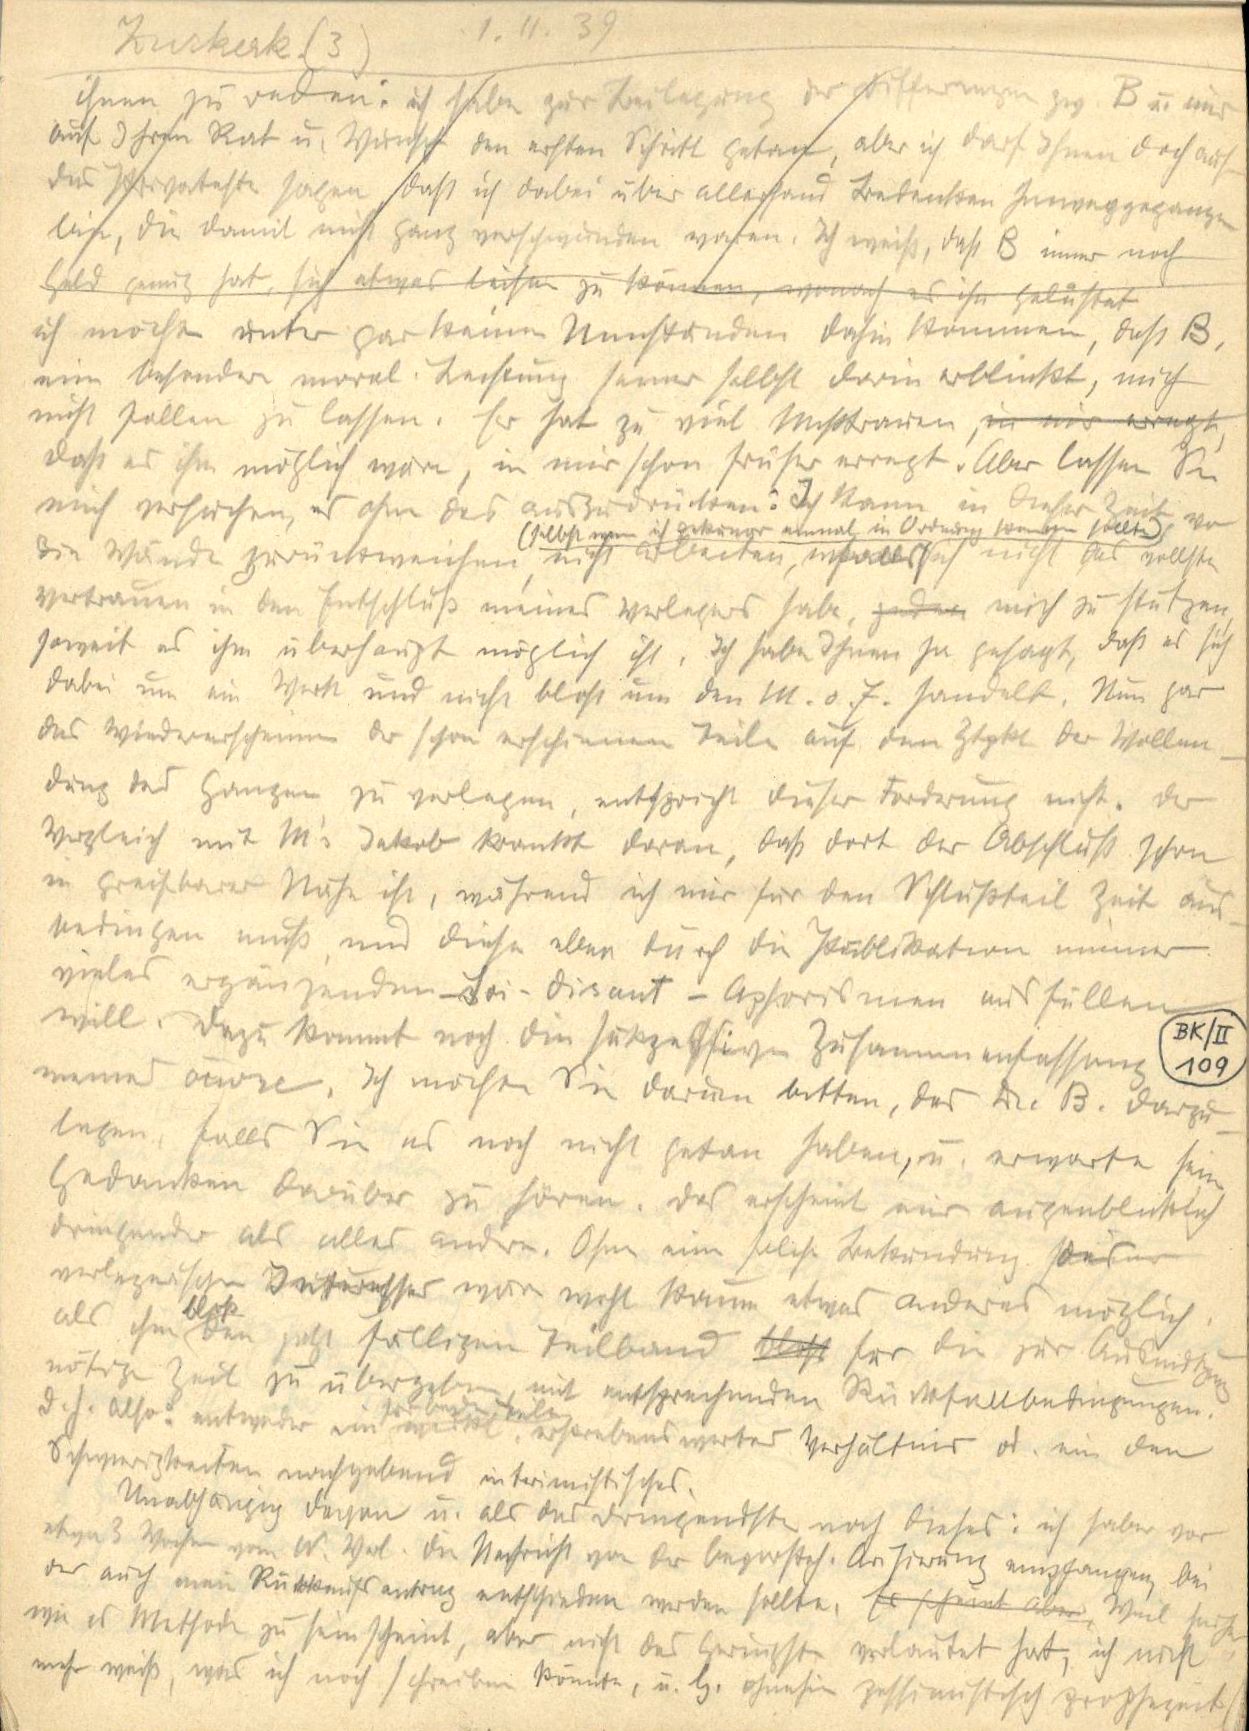 Zuskerk. (3) 1. II. 39
ihnen zu reden: ich habe zur Beilegung der Differenzen zw. B u. mir
auf Ihren Rat u. Wunsch den ersten Schritt getan, aber ich darf Ihnen doch aufs
Privateste sagen, daß ich dabei über allerhand Bedenken hinweggegangen
bin, die damit nicht ganz verschwunden waren. Ich weiß, daß B immer noch
Geld genug hat, sich etwas leisten zu können, wonach es ihn gelüstet
ich möchte unter gar keinen Umständen dahin kommen, daß B.
eine besondere moral. Leistung seiner selbst darin erblickt, mich
nicht fallen zu lassen. Er hat zu viel Mißtrauen, in mir erregt,
daß es ihm möglich wäre, in mir schon früher erregt. Aber lassen Sie
mich versuchen, es ohne das auszudrücken: Ich kann in dieser Zeit, wo
(selbst wenn ich einmal in Ordnung kommen sollte)
die Wände zurückweichen, nicht arbeiten, wofalls ich nicht das vollste
Vertrauen in den Entschluß meines Verlegers habe, mich zu stützen,
soweit es ihm überhaupt möglich ist. Ich habe Ihnen ja gesagt, daß es sich
dabei um ein Werk und nicht bloß um den M. o. E. handelt. Nun gar
das Wiedererscheinen der schon erschienenen Teile auf den Ztpkt der Vollen-
dung des Ganzen zu verlegen, entspricht dieser Forderung nicht. Der
Vergleich mit M's Jakob krankt daran, daß dort der Abschluß schon
in greifbarer Nähe ist, während ich mir für den Schlußteil Zeit aus-
bedingen muß und diese eben durch die Publikation meiner
vieles ergänzenden – Soi-disant – Aphorismen ausfüllen
will. Dazu kommt noch die sukzessive Zusammenfassung
BK/II
109
meines œuvre. Ich möchte Sie darum bitten, das Dr. B. darzu-
legen, falls Sie es noch nicht getan haben, u. erwarte seine
Gedanken darüber zu hören. Das erscheint mir augenblicklich
dringender als alles andere. Ohne eine solche Bekundung seines
verlegerischen Interesses wäre wohl kaum etwas anderes möglich,
als ihm bloß den jetzt fälligen Teilband bloß für die zur Ausnützung
nötige Zeit zu übergeben, mit entsprechenden Rückfallbedingungen.
d. h. also: entweder ein für beide Teile erstrebenswertes Verhältnis od. ein den
Schwierigkeiten nachgebend interimistisches.
Unabhängig davon u. als das dringendste noch dieses: ich habe vor
etwa 3 Wochen vom W. Verl. die Nachricht von der Arisierung empfangen, bei
der auch mein Rückkaufsantrag entschieden werden sollte. Es scheint aber, Weil seither
wie es Methode zu sein scheint, aber nicht das Geringste verlautet hat, ich nicht
mehr weiß, was ich noch schreiben könnte, u. B. ohnehin pessimistisch prophezeit